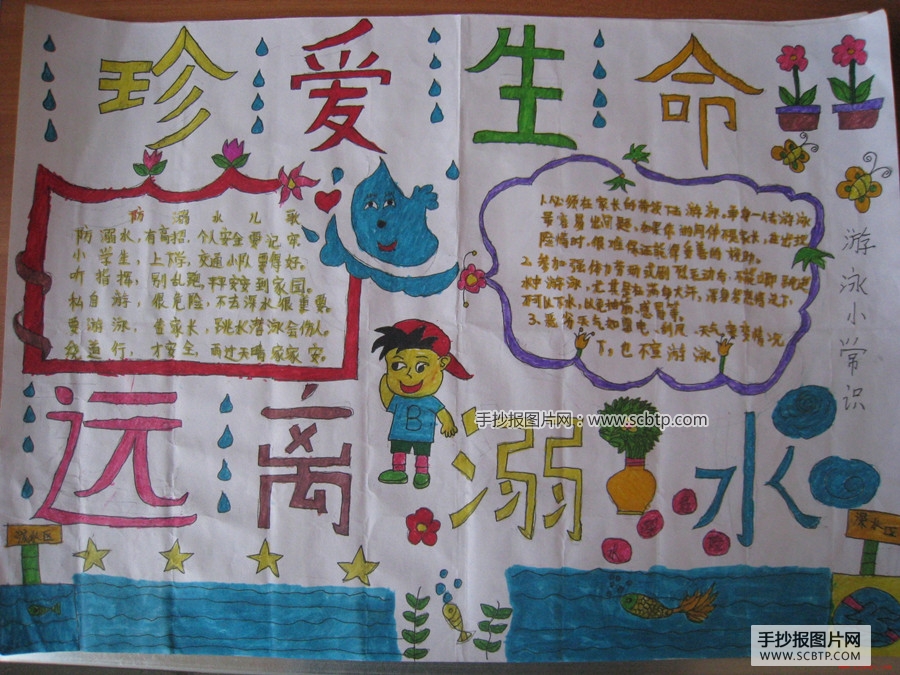 珍爱生命
防溺水儿歌
防溺水,有高招,个人安全要记牢。
小学生,上下学,交通小队要得好。
听指挥,别乱跑,平平安安到家园。
私自游,很危险,不去深水很重要。
要游泳,告家长,跳水潜泳会伤人。
安道行,才安全,雨过天晴家家安。
1.必须在家长的带领下去游泳,单身一人去游泳
最容易出问题,如果你的同伴不是家长,在出现
险情时,很难保证能得到妥善的救助。
2.参加强体力劳动或剧烈运动后,不能立即跳进
水中游泳,尤其是在满身大汗,浑身发热情况下
不可以下水,以免抽筋,感冒等。
3.恶劣天气如雷电、刮风、天气突变情况
下,也不宜游泳。
游泳小常识
远离溺水
手抄报图片网:www.scbtp.com
深水区
手抄报图片网
WWW.SCBTP.COM